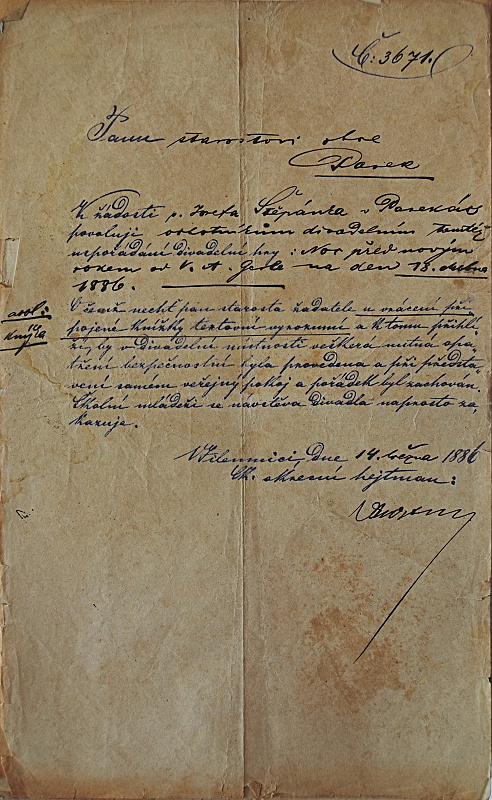 Č: 3671.
Panu starostovi obce
Pasek
K žádosti p. Josefa Štěpánka v Pasekách
povoluji ochotníkům divadelním tamtéž
uspořádání divadelní hry: Noc před novým
rokem od V. A. na den 18. dubna
1886.
O čemž nechť pan starosta žadatele u vrácení při-
pojené knížky textovní vyrozumí a k tomu přihlí-
ží, by v divadelní místnosti veškerá nutná opa-
tření bezpečnostní byla provedena a při předsta-
vení samém veřejný pokoj a pořádek byl zachován.
Školní mládeži se návštěva divadla naprosto za-
kazuje.
1
knížka
V Jilemnici, dne 14. března 1886
Ck. okresní hejtman: